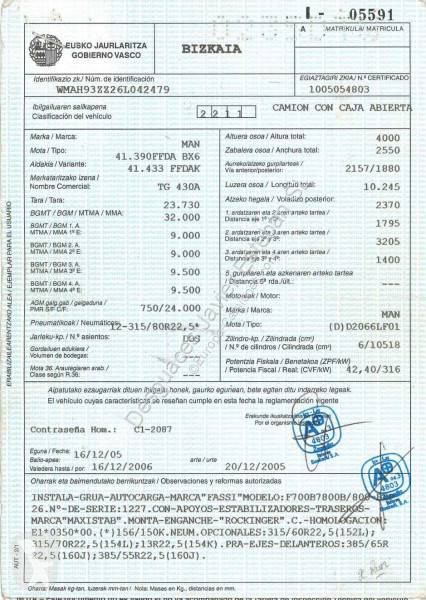 I - 05591
A MATRIKULA/ MATRICULA
EUSKO JAURLARITZA
GOBIERNO VASCO
BIZKAIA
Identifikazio zk./ Núm. de identificación
EGIAZTAGIRI ZKIA./ N.º CERTIFICADO
WMAH93ZZ26L042479
1005054803
Ibilgailuaren sailkapena
Clasificación del vehículo
2211
CAMION CON CAJA ABIERTA
Marka / Marca:
MAN
Mota / Tipo:
41.390FFDA BX6
Aldakia / Variante:
41.433 FFDAK
Merkataritzako izena /
Nombre Comercial:
TG 430A
Tara / Tara:
23.730
BGMT / BGMT / MTMA / MMA:
32.000
BGMT / BGM 1. A
MTMA / MMA 1º E:
9.000
BGMT / BGM 2. A
MTMA / MMA 2º E:
9.000
BGMT / BGM 3. A
MTMA / MMA 3º E:
9.500
BGMT / BGM 4. A
MTMA / MMA 4º E:
9.500
AGM galg.gab / galgaduna /
PMR S/F C/F:
750/24.000
Pneumatikoak / Neumáticos:
12-315/80R22,5*
Jarleku-kp. / N.º asientos:
DOS
Gordailuen edukiera /
Volumen de bodegas:
---
Mota 36. Araugileagaren arab./
Clase según R.36:
---
Altuera osoa / Altura total:
4000
Zabalera osoa / Anchura total:
2550
Aurreko/atzeko gurpilarteko/
Vía anterior/posterior:
2157/1880
Luzera osoa / Longitud total:
10.245
Atzeko hegala / Voladizo posterior:
2370
1. ardatzaren eta 2.aren arteko tartea /
Distancia eje 1º-2º:
1795
2. ardatzaren eta 3.aren arteko tartea /
Distancia eje 2º y 3º:
3205
3. ardatzaren eta 4.aren arteko tartea /
Distancia eje 3º y 4º:
1400
5. gurpilaren eta azkenaren arteko tartea
/ Distancia 5ª rda./últ.:
---
Motorelak / Motor:
Marka / Marca:
MAN
Mota / Tipo:
(D)D2066LF01
Zilindro-kp. / Zilindrada (cm³)
/ N.º de cilindros / Cilindrada (cm³)
6/10518
Potentzia Fiskala / Benetakoa (ZPF/kW)
/ Potencia Fiscal / Real (CVF/kW)
42,40/316
El vehículo cuyas características se reseñan cumple en esta fecha la reglamentación vigente
Contraseña Hom.: C1-2087
Por el organismo
4803
Eguna / Fecha:
16/12/05
Balio-epea:
Valedera hasta /
16/12/2006
arte / urte
20/12/2005
4803
Oharrak eta baimendutako berrikuntzak / Observaciones y reformas autorizadas
INSTALA-GRUA-AUTOCARGA-MARCA"FASSI"MODELO:F700B7800B/800
26.Nº-DE-SERIE:1227.CON-APOYOS-ESTABILIZADORES-TRASEROS-
MARCA"MAXISTAB".MONTA-ENGANCHE-"ROCKINGER".C.-HOMOLOGACION:
E1*0350*00.(*)156/150K.NEUM.OPCIONALES:315/60R22,5(152L);
315/70R22,5(154L);13R22,5(154K).PRA-EJES-DELANTEROS:385/65R
22,5(160J);385/55R22,5(160J).
Oharra: Masak kg-tan, luzerak mm-tan / Nota: Masas en Kg., distancias en mm.